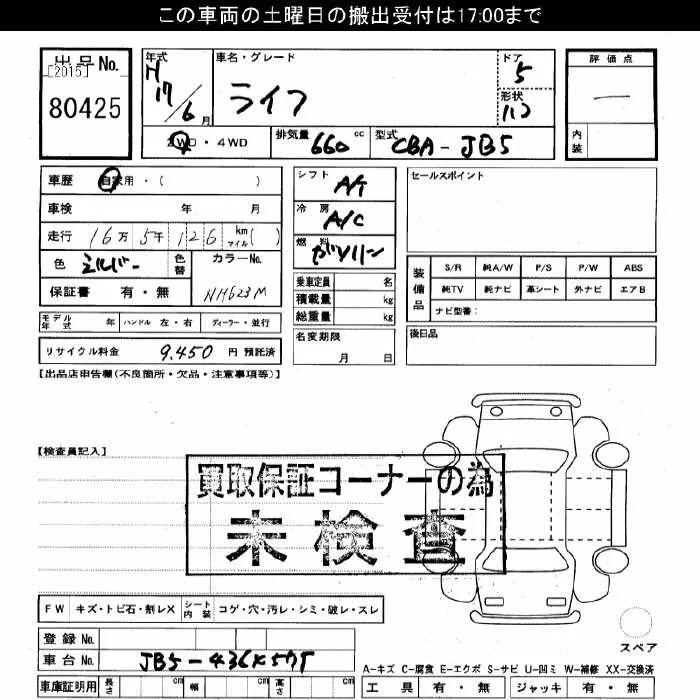 この車両の土曜日の搬出受付は17:00まで
出品No.
[2015]
80425
年式
H17/6月
車名・グレード
ライフ
ドア
5
形状
ハコ
評価点
―
内装
2WD・4WD
排気量 660 cc
型式 CBA-JB5
車歴 自家用・( )
車検 年 月
走行 16万5千126 km マイル( )
色 シルバー 色替 カラーNo.
NH623M
保証書 有・無
シフト A/T
冷房 A/C
燃料 ガソリン
乗車定員 名
積載量 kg
総重量 kg
セールスポイント
装備品
S/R 純A/W P/S P/W ABS
純TV 純ナビ 革シート 外ナビ エアB
ナビ型番:
モデル年式 年 ハンドル 左・右 ディーラー・並行
名変期限
月 日
後日品
リサイクル料金 9,450 円 預託済
【出品店申告欄(不良箇所・欠品・注意事項等)】
【検査員記入】
買取保証コーナーの為
未検査
FW キズ・トビ石・割レX シート内装 コゲ・穴・汚レ・シミ・破レ・スレ
スペア
登録No.
車台No.
A-キズ C-腐食 E-エクボ S-サビ U-凹ミ W-補修 XX-交換済
車庫証明用 長さ cm 幅 cm 高さ cm
工具 有・無 ジャッキ 有・無